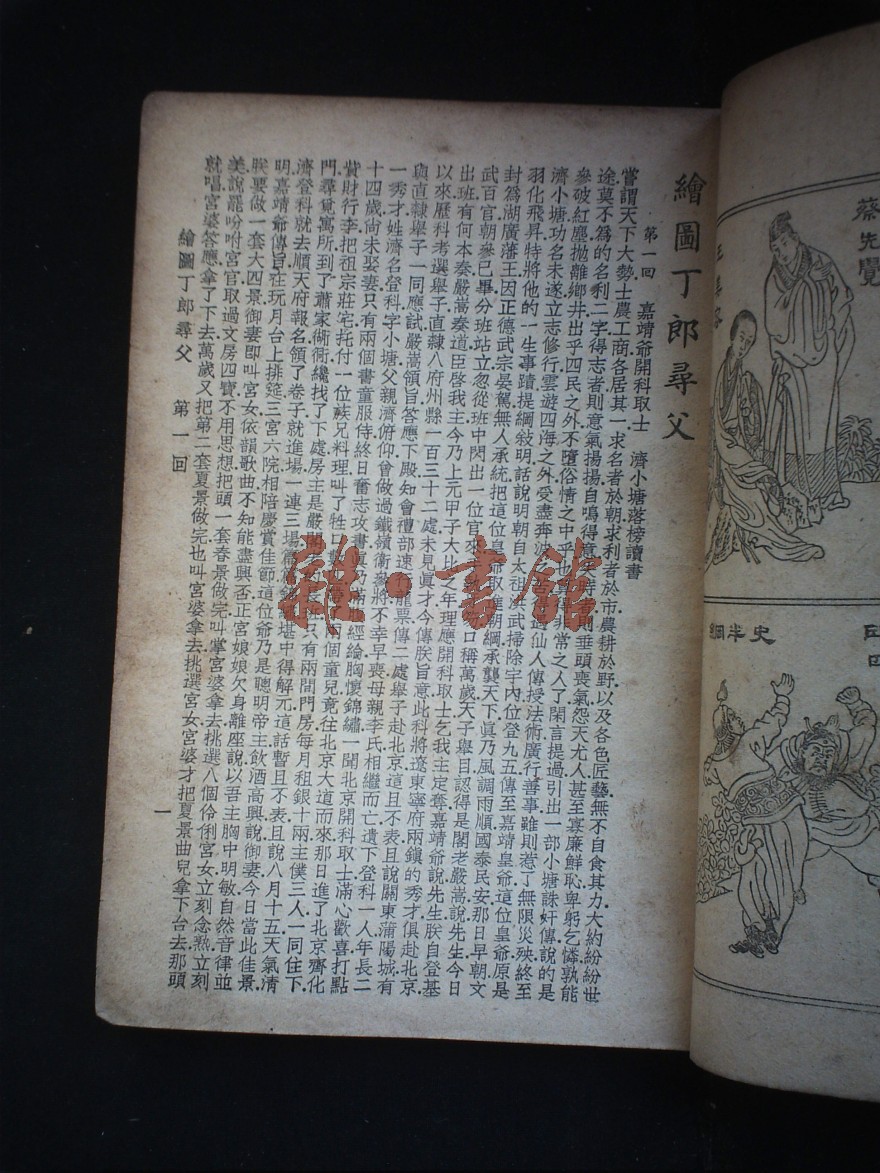 蔡先覺
史半硐
繪圖丁郎尋父
第一回 嘉靖爺開科取士 濟小塘落榜讀書
嘗謂天下大勢士農工商各居其一求名者於朝求利者於市農耕於野以及各色匠藝無不自食其力大約紛紛世
途莫不為的名利二字得志者則意氣揚揚自鳴得意失時者則垂頭喪氣怨天尤人甚至寡廉鮮恥卑躬乞憐孰能
參破紅塵拋離鄉井出乎四民之外不墮俗情之中乎也非常之人了閑言提過引出一部小塘誅奸傳說的是
濟小塘功名未遂立志修行雲遊四海之外受盡奔波仙人傳授法術廣行善事雖則惹了無限災殃終至
羽化飛昇特將他的一生事蹟提綱敍明話說明朝自太祖洪武掃除宇內位登九五傳至嘉靖皇爺這位皇爺原是
封為湖廣藩王因正德武宗晏駕無人承統把這位皇爺取進朝綱承襲天下眞乃風調雨順國泰民安那日早朝文
武百官朝參已畢分班站立忽從班中閃出一位官來口稱萬歲天子舉目認得是閣老嚴嵩說先生今日
出班有何本奏嚴嵩奏道臣啓我主今乃上元甲子大比之年理應開科取士乞我主定奪嘉靖爺說先生朕自登基
以來歷科考選舉子直隸八府州縣一百三十二處未見眞才今傳朕旨意此科將遼東寧府兩鎮的秀才俱赴北京
與直隸舉子一同應試嚴嵩領旨答應下殿知會禮部速行龍票傳二處舉子赴北京這且不表且說關東蒲陽城有
一秀才姓濟名登科字小塘父親濟俯仰曾做過鐵嶺衞參將不幸早喪母親李氏相繼而亡遺下登科一人年長二
十四歲尙未娶妻只有兩個書童服侍終日奮志攻書眞乃滿腹經綸胸懷錦繡一聞北京開科取士滿心歡喜打點
貲財行李把祖宗莊宅托付一位蘇兄料理叫了牲口兩個童兒竟往北京大道而來那日進了北京齊化
門尋覓寓所到了蕭家衚衕纔找了下處房主是嚴閣老只有兩間門房每月租銀十兩主僕三人一同住下
濟登科就去順天府報名領了卷子就進場一連三場篇堪中得解元這話暫且不表且說八月十五天氣清
明嘉靖爺傳旨在玩月台上排筵三宮六院相陪慶賞佳節這位爺乃是聰明帝主飲酒高興說御妻今日當此佳景
朕要做一套大四景御妻卽叫宮女依韻歌曲不知能盡興否正宮娘娘欠身離座說以吾主胸中明敏自然音律並
美說罷吩咐宮官取過文房四寶不用思想把頭一套春景做完叫掌宮婆拿去挑選八個伶俐宮女立刻念熟立刻
就唱宮婆答應拿了下去萬歲又把第二套夏景做完也叫宮婆拿去挑選宮女宮婆才把夏景曲兒拿下台去那頭
繪圖丁郎尋父 第一回 一
雜·書館